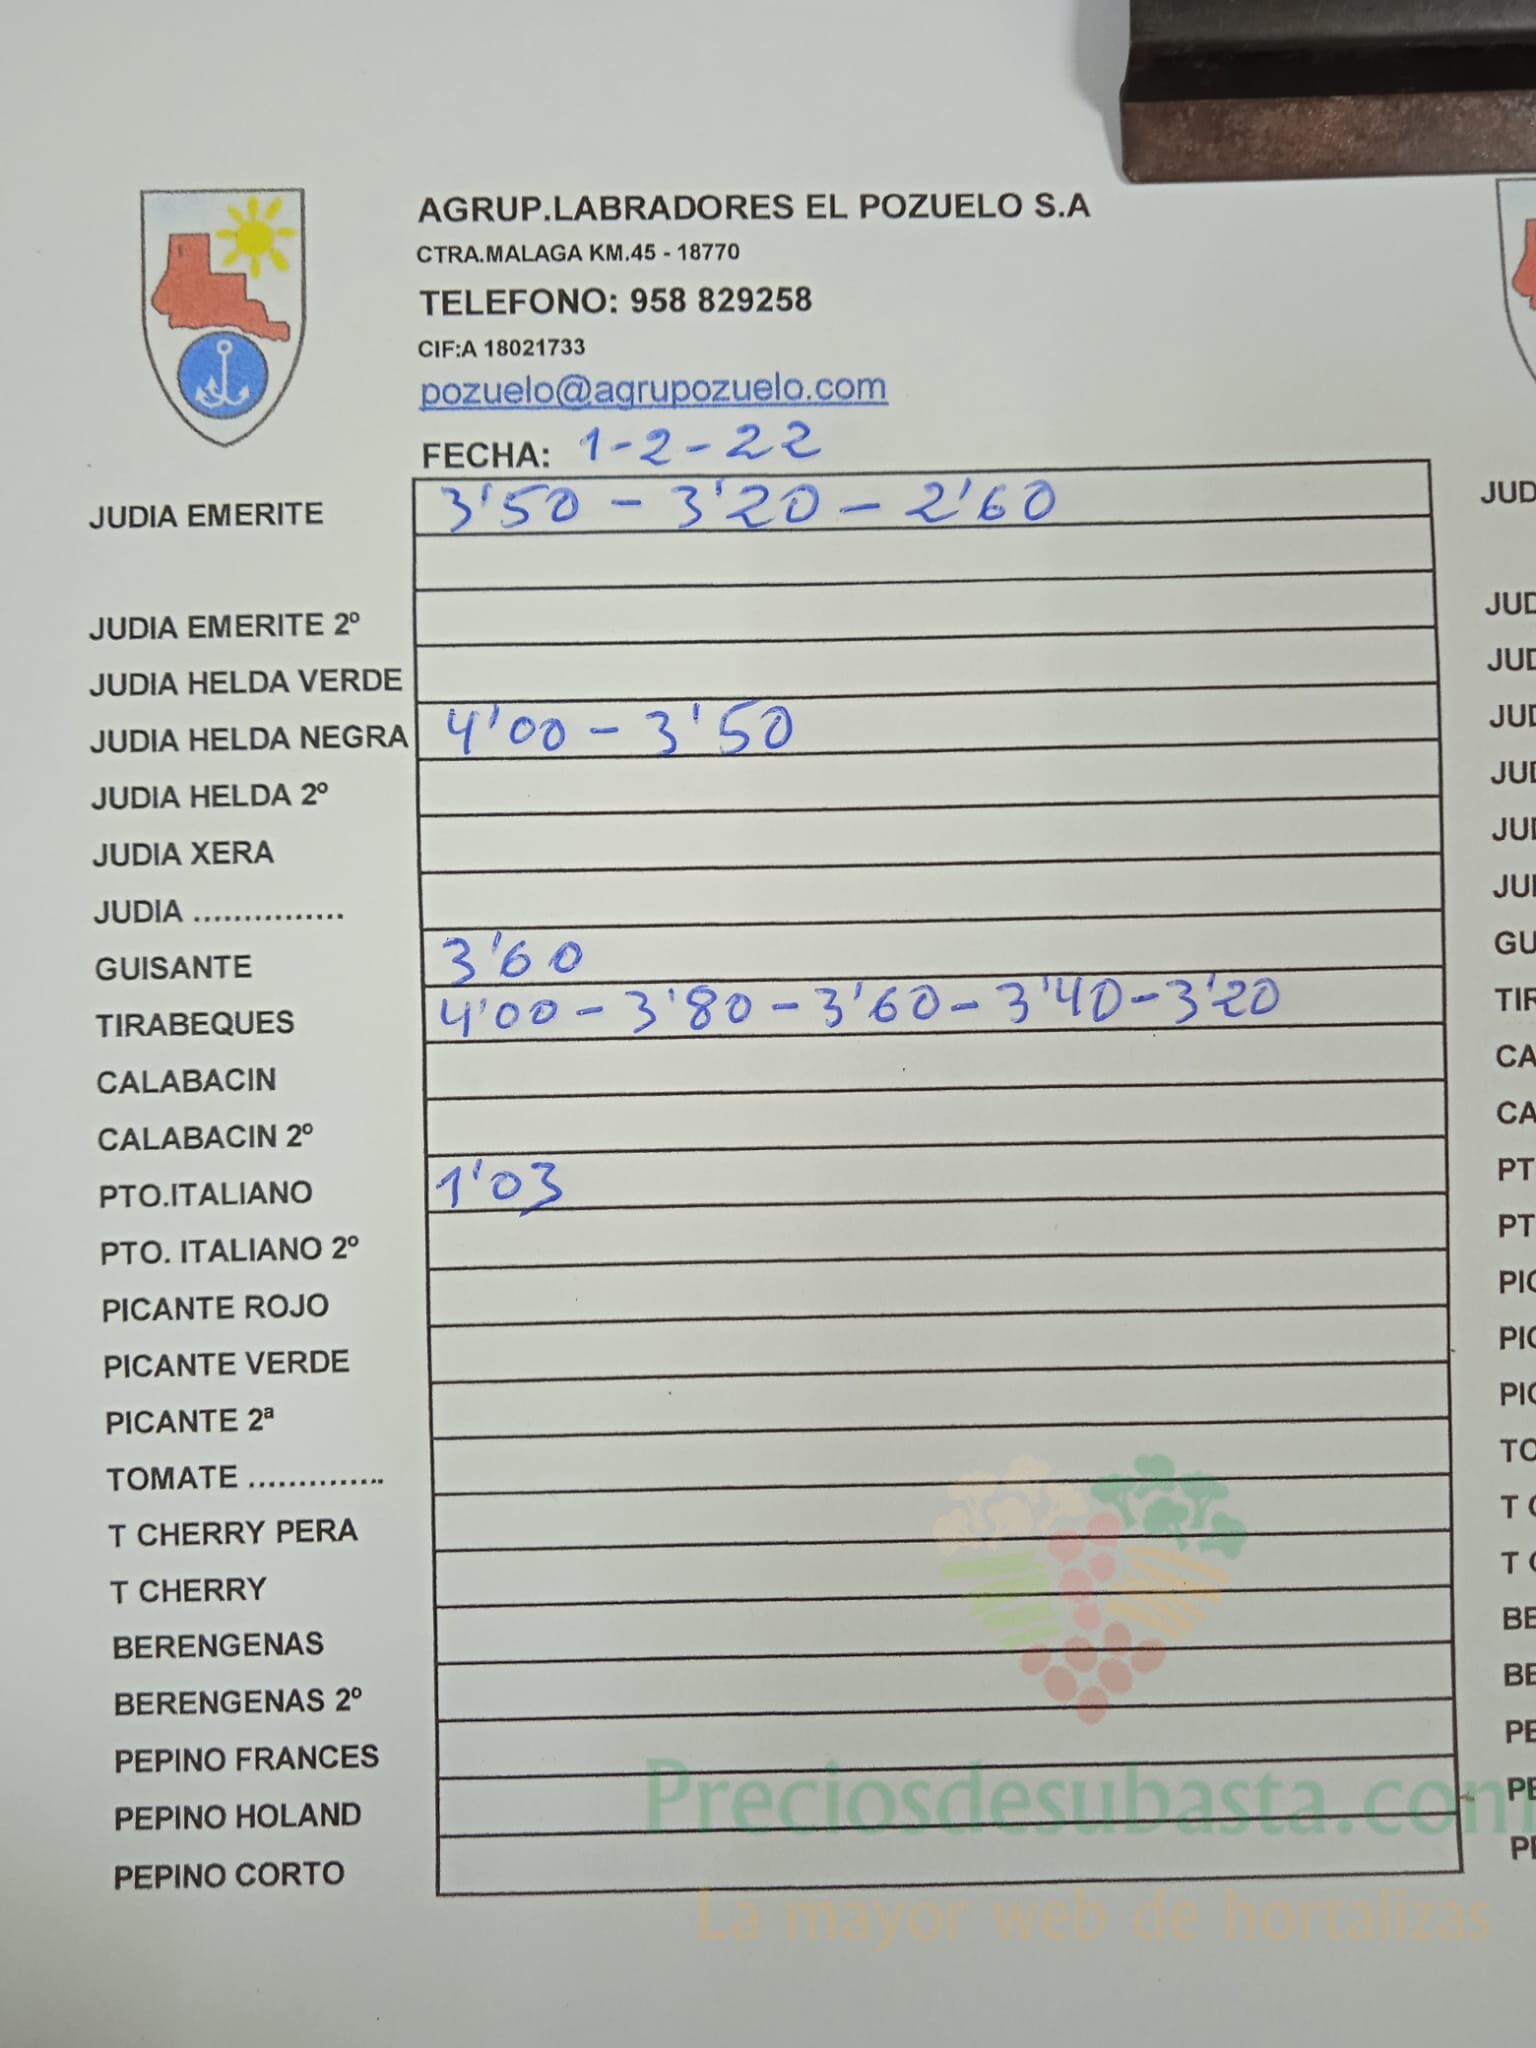 AGRUP.LABRADORES EL POZUELO S.A
CTRA.MALAGA KM.45 - 18770
TELEFONO: 958 829258
CIF:A 18021733
pozuelo@agrupozuelo.com
FECHA: 1-2-22
JUDIA EMERITE 3'50 - 3'20 - 2'60
JUDIA EMERITE 2º
JUDIA HELDA VERDE
JUDIA HELDA NEGRA 4'00 - 3'50
JUDIA HELDA 2º
JUDIA XERA
JUDIA ...............
GUISANTE 3'60
TIRABEQUES 4'00 - 3'80 - 3'60 - 3'40 - 3'20
CALABACIN
CALABACIN 2º
PTO.ITALIANO 1'03
PTO. ITALIANO 2º
PICANTE ROJO
PICANTE VERDE
PICANTE 2ª
TOMATE ..............
T CHERRY PERA
T CHERRY
BERENGENAS
BERENGENAS 2º
PEPINO FRANCES
PEPINO HOLAND
PEPINO CORTO
Preciosdesubasta.com
La mayor web de hortalizas